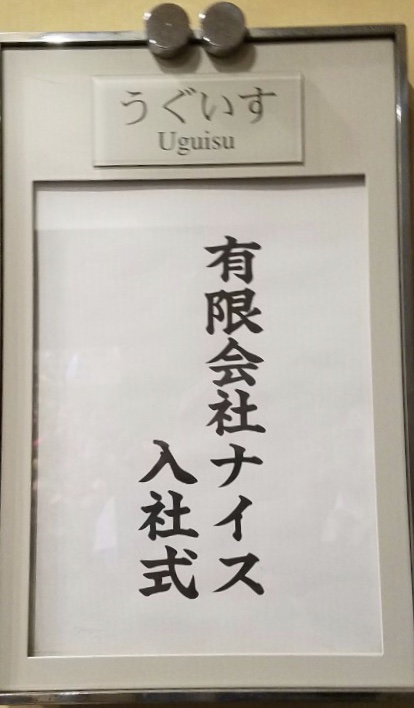 うぐいす
Uguisu
有限会社ナイス
入社式